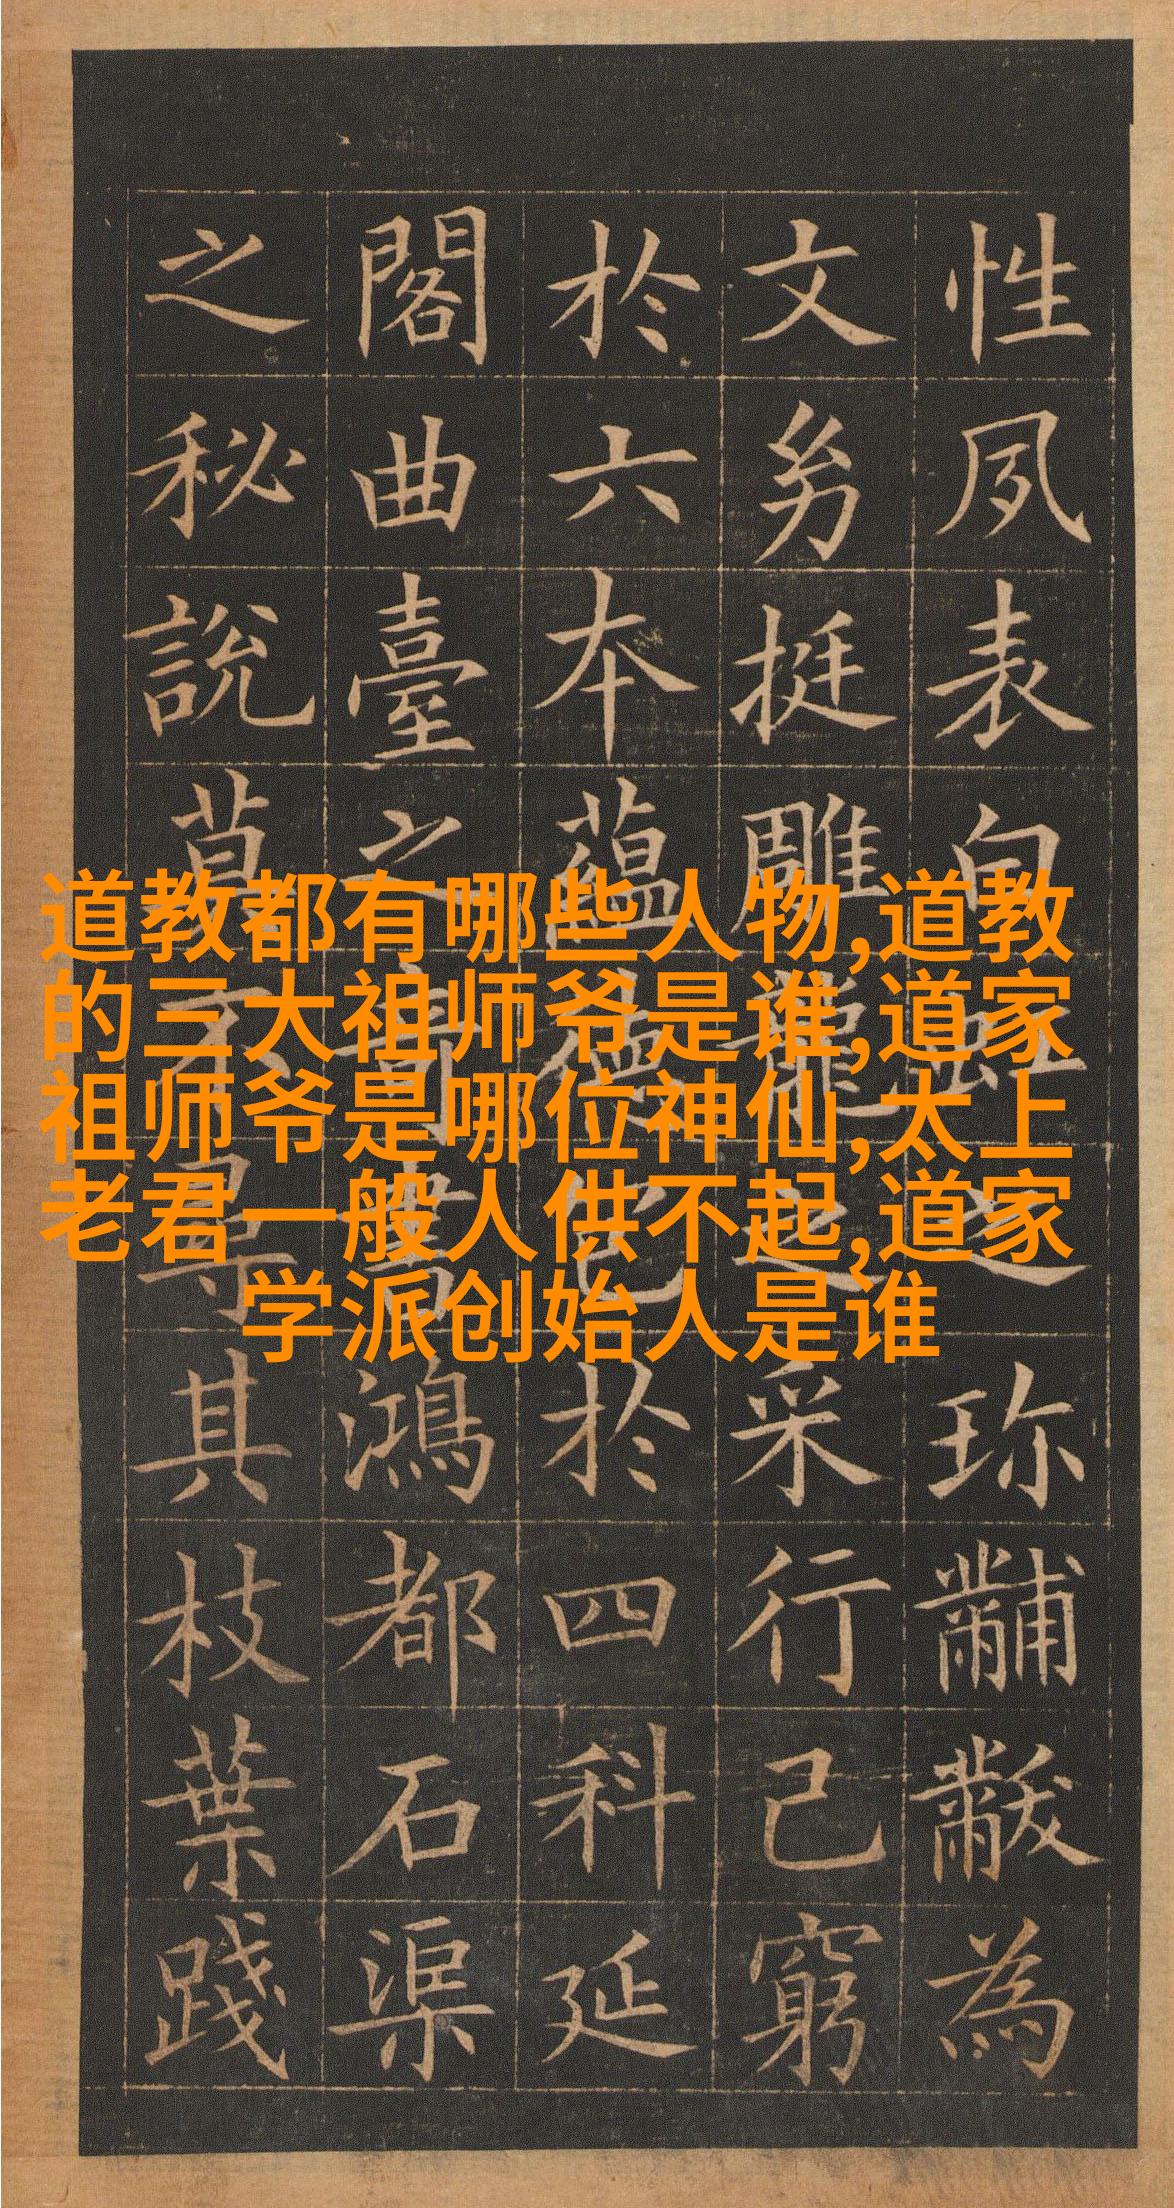 性夙表自珎黼黻為
文挺雕龍之采行己窮
於六本蘊德包於四科延
閣曲臺之奇書鴻都石渠
之秘說莫不尋其枝葉踐
道教都有哪些人物,道教
的三大祖师爷是谁,道家
祖师爷是哪位神仙,太上
老君一般人供不起,道家
学派创始人是谁